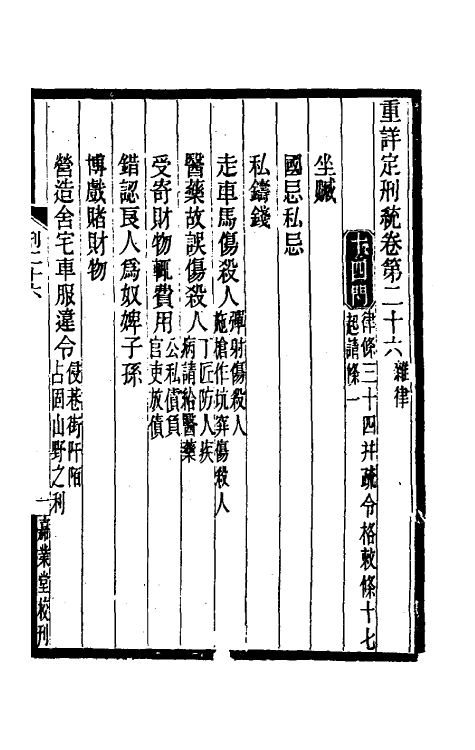 重詳定刑統卷第二十六 雜律
十四門 律條三十四并疏令格敕條十七
起請條一
坐贓
國忌私忌
私鑄錢
走車馬傷殺人 彈射傷殺人
施槍作坑穽傷殺人
醫藥故誤傷殺人 丁匠防人疾
病請給醫藥
受寄財物輒費用 公私債負
官吏放債
錯認良人爲奴婢子孫
博戲賭財物
營造舍宅車服違令 侵巷街阡陌
占固山野之利
刑二十六
一
嘉業堂校刊